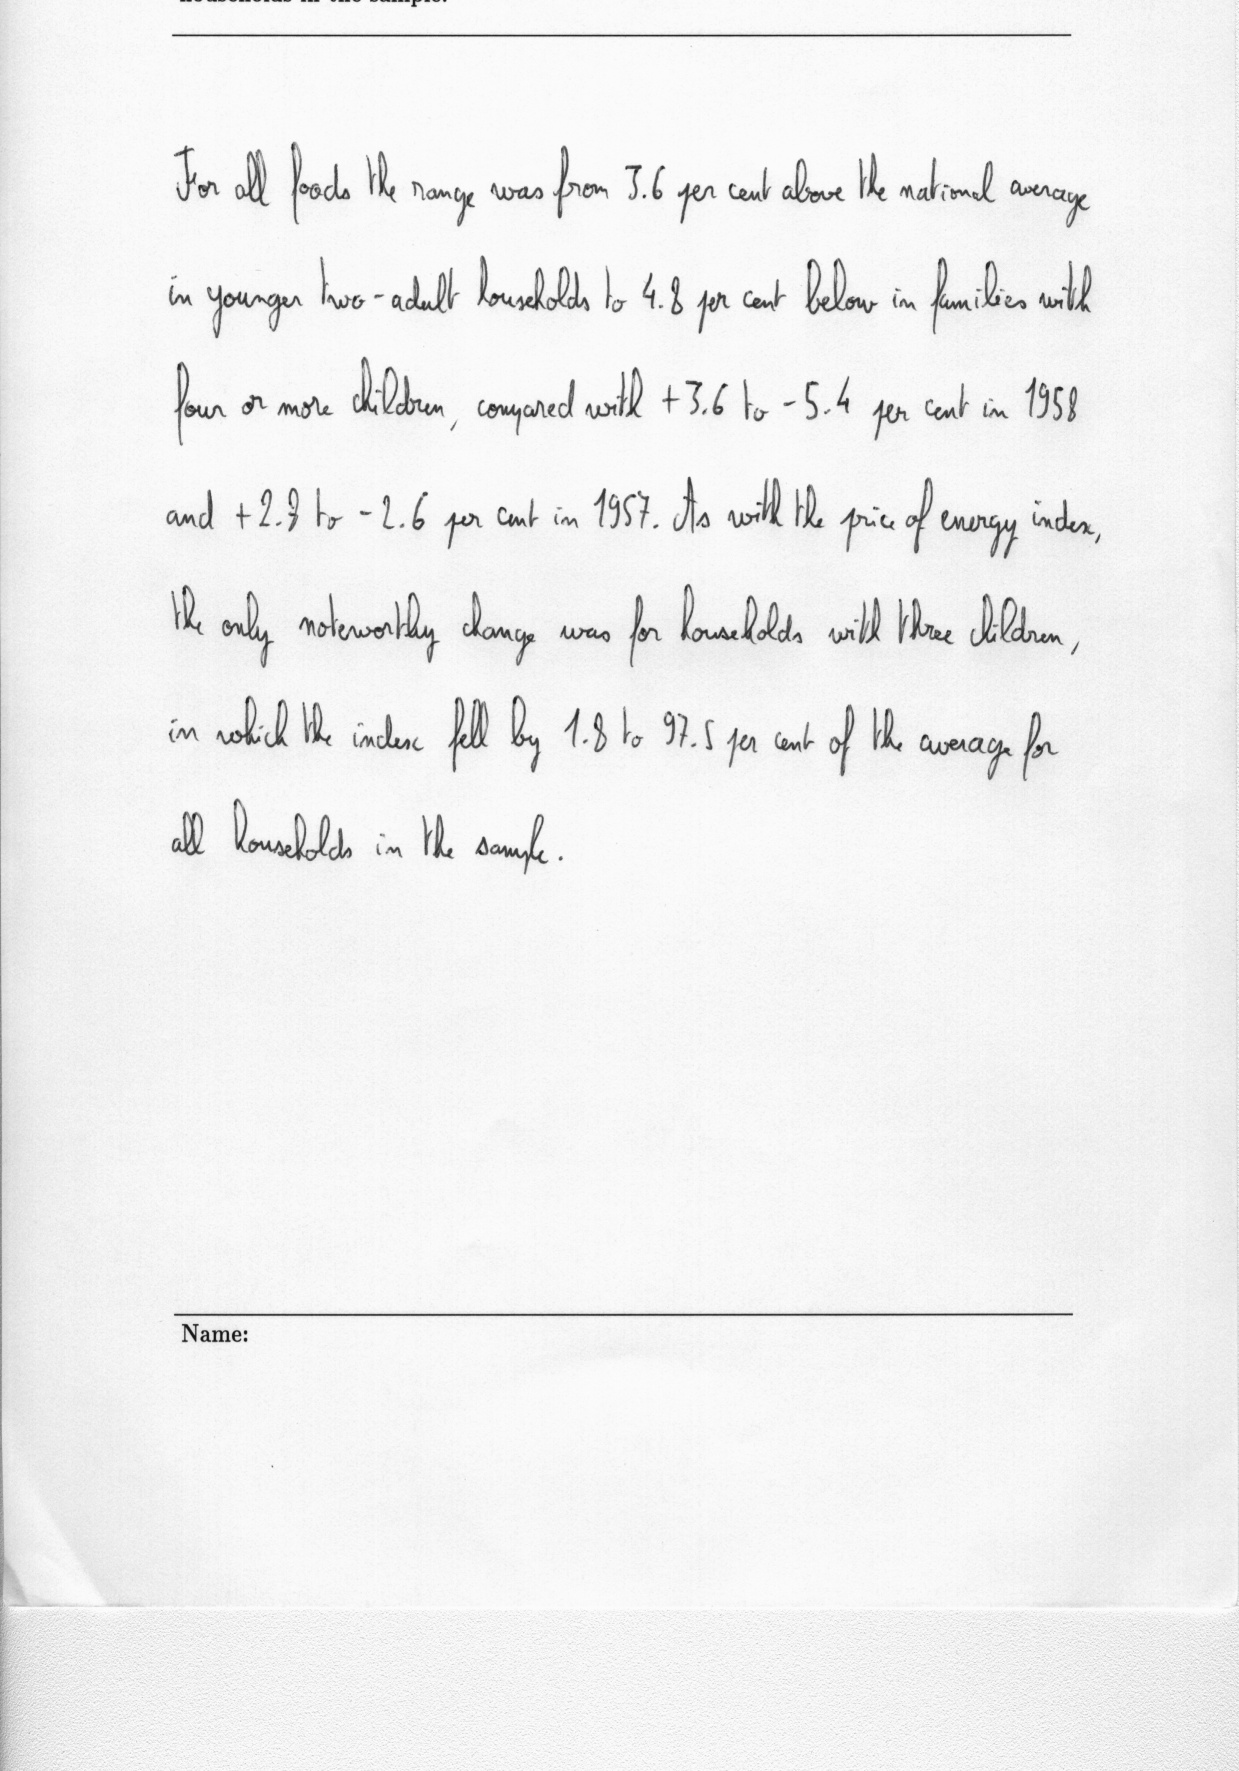 households in the sample.
For all foods the range was from 3.6 per cent above the national average
in younger two-adult households to 4.8 per cent below in families with
four or more children, compared with +3.6 to -5.4 per cent in 1958
and +2.8 to -2.6 per cent in 1957. As with the price of energy index,
the only noteworthy change was for households with three children,
in which the index fell by 1.8 to 97.5 per cent of the average for
all households in the sample.
Name: